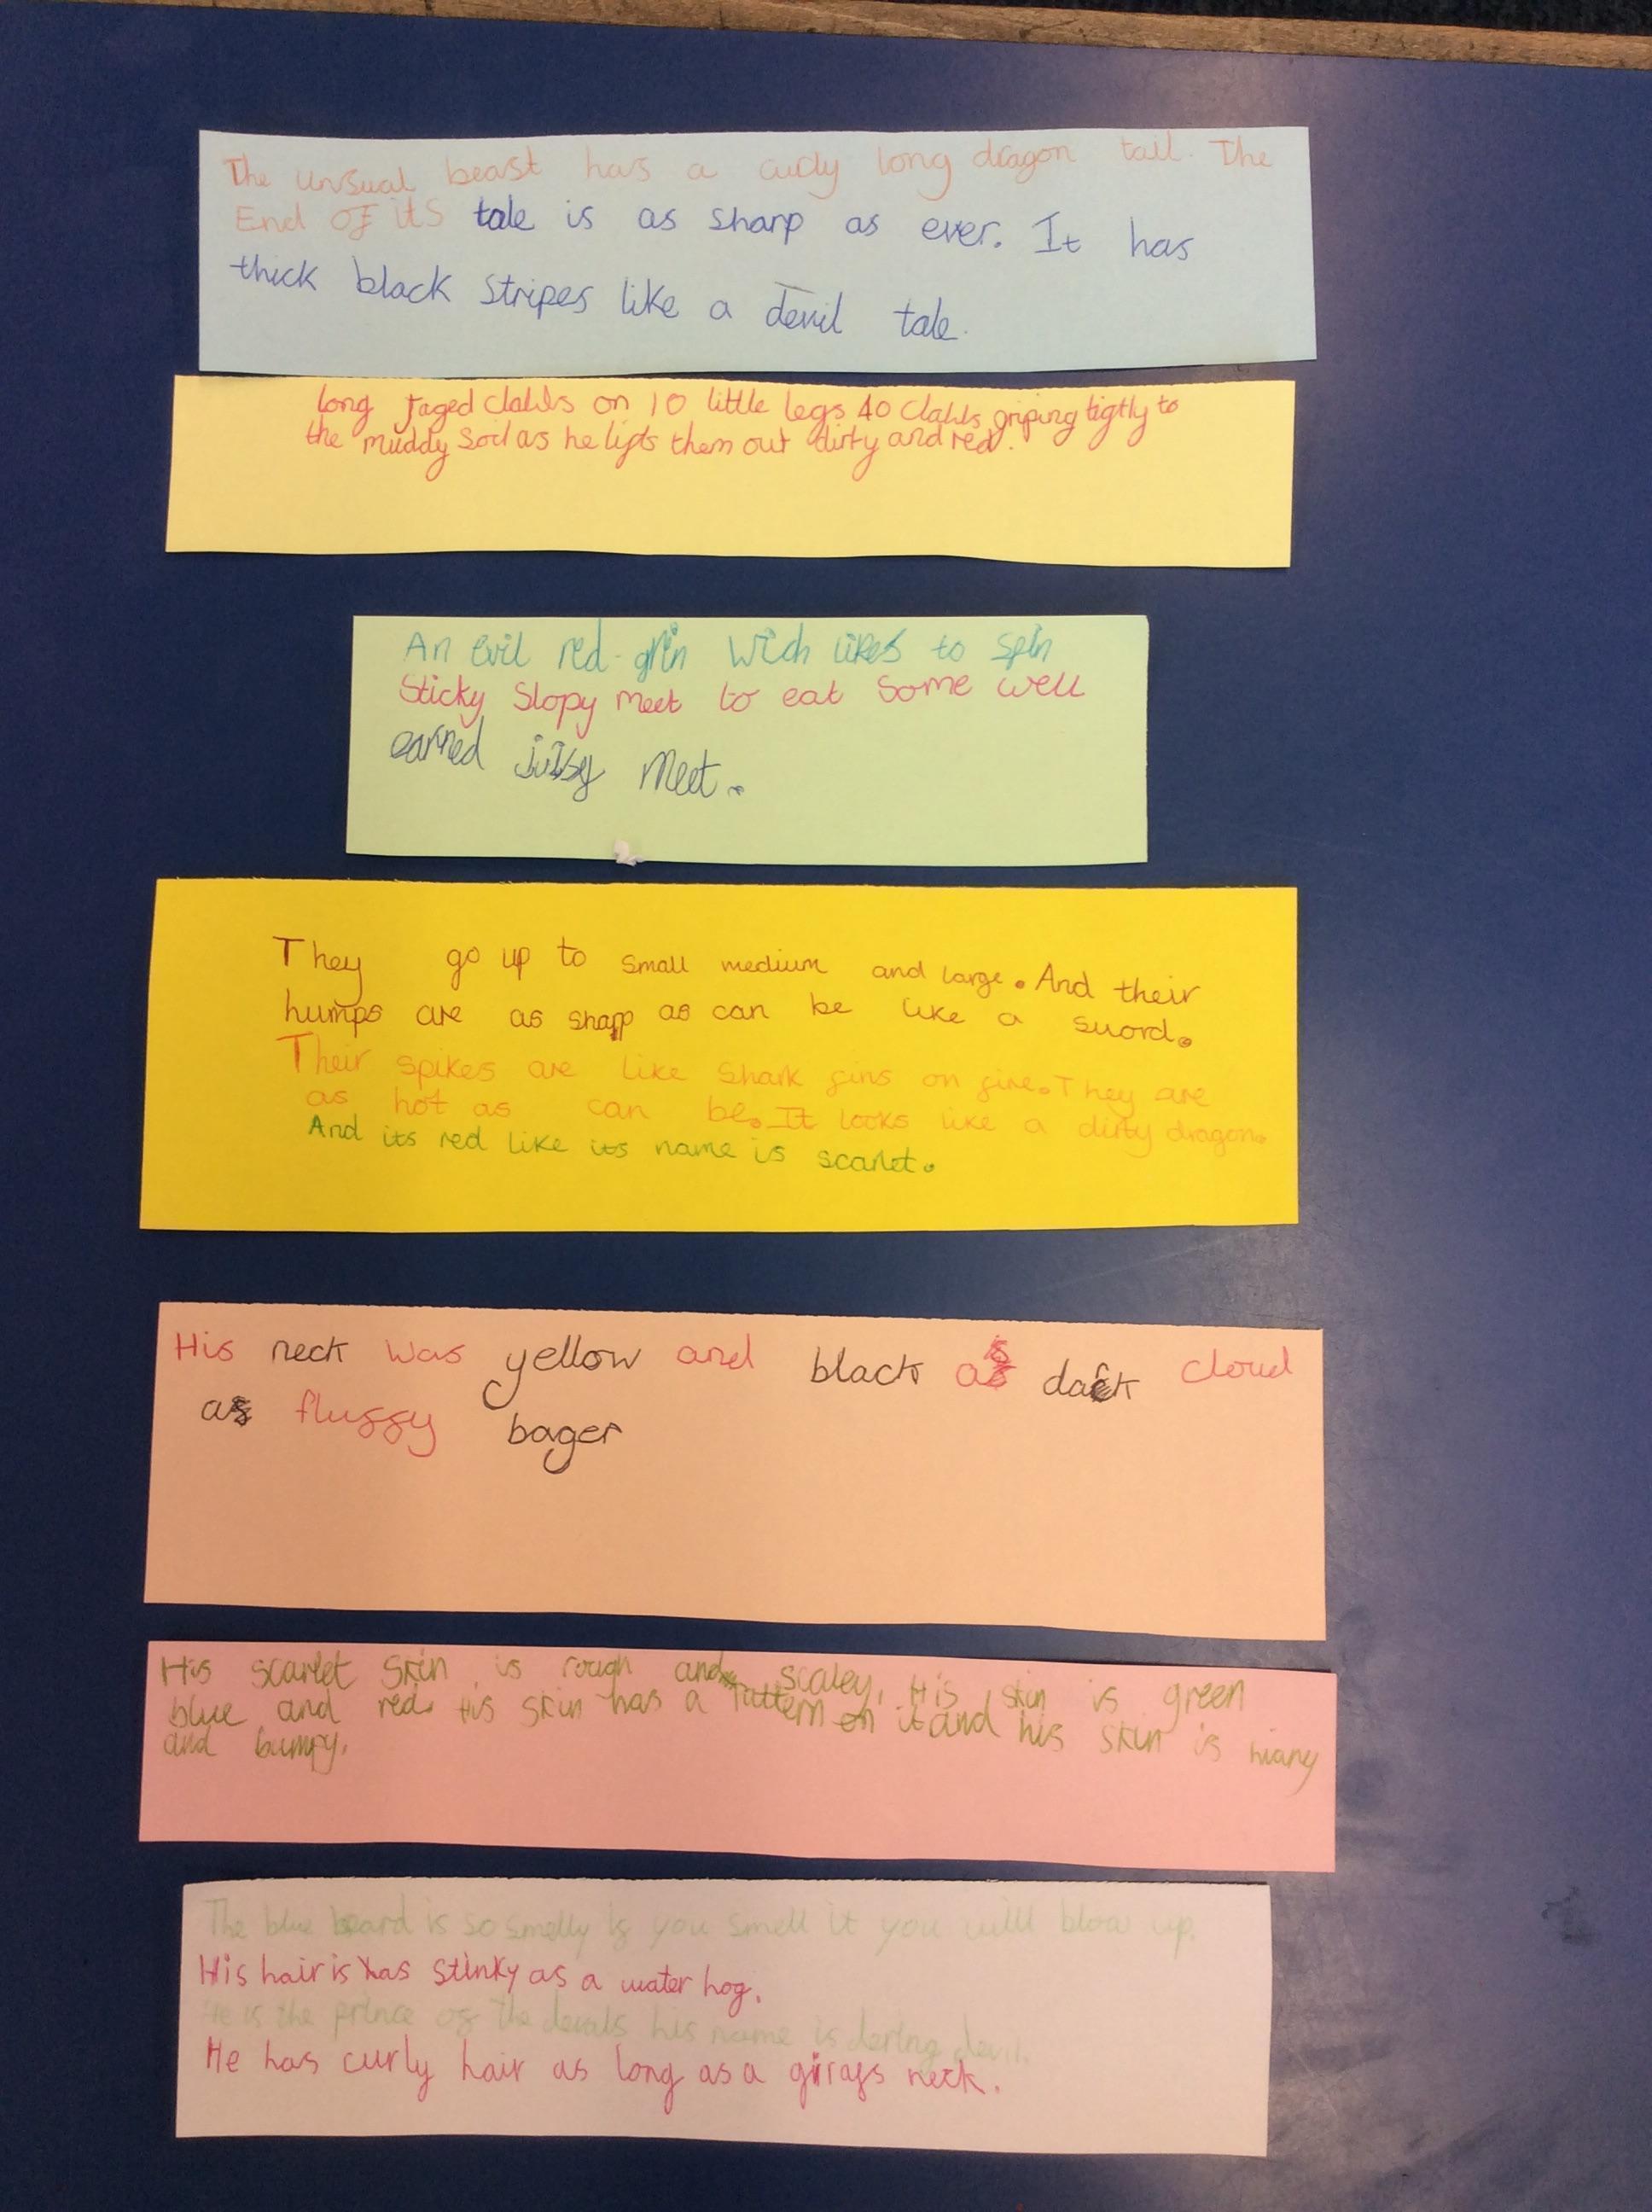 The unusual beast has a curly long dragon tail. The
End of its tale is as sharp as ever. It has
thick black stripes like a devil tale.
long Jaged clawls on 10 little legs 40 clawls griping tigtly to
the muddy soil as he lifts them out dirty and red.
An evil red-grin wich likes to spin
Sticky Slopy meet to eat some well
earned meet.
They go up to small medium and large. And their
humps are as sharp as can be like a sword.
Their spikes are like shark fins on fire. They are
as hot as can be. It looks like a dirty dragon.
And its red like its name is scarlet.
His neck was yellow and black as dark cloud
as fluffy bager
His scarlet skin is rough and scaley. His skin is green
blue and red. His skin has a Pattern on it and his skin is hiary
and bumpy.
The blue beard is so smelly if you smell it you will blow up.
His hair is has stinky as a water hog.
He is the prince of the devals his name is dering devil.
He has curly hair as long as a girafs neck.